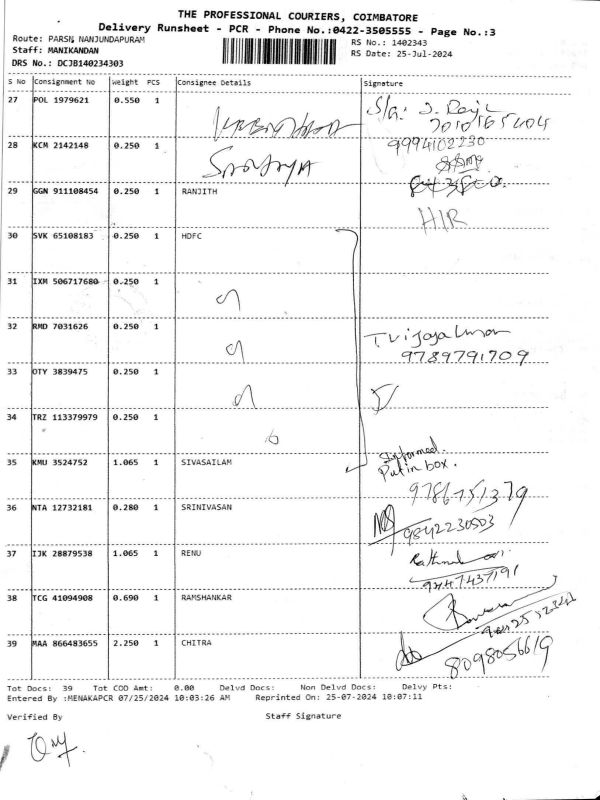 THE PROFESSIONAL COURIERS, COIMBATORE
Delivery Runsheet - PCR - Phone No.:0422-3505555 - Page No.:3
Route: PARSN NANJUNDAPURAM
RS No.: 1402343
Staff: MANIKANDAN
RS Date: 25-Jul-2024
DRS No.: DCJB140234303
S No Consignment No Weight PCS Consignee Details Signature
27 POL 1979621 0.550 1
28 KCM 2142148 0.250 1
9994102230
29 GGN 911108454 0.250 1 RANJITH
HIR
30 SVK 65108183 0.250 1 HDFC
31 IXM 506717680 0.250 1
32 RMD 7031626 0.250 1
9789791709
33 OTY 3839475 0.250 1
34 TRZ 113379979 0.250 1
Informed.
Put in box.
35 KMU 3524752 1.065 1 SIVASAILAM
9786751379
36 NTA 12732181 0.280 1 SRINIVASAN
9842230503
37 IJK 28879538 1.065 1 RENU
9447437191
38 TCG 41094908 0.690 1 RAMSHANKAR
39 MAA 866483655 2.250 1 CHITRA
8098056619
Tot Docs: 39 Tot COD Amt: 0.00 Delvd Docs: Non Delvd Docs: Delvy Pts:
Entered By :MENAKAPCR 07/25/2024 10:03:26 AM Reprinted On: 25-07-2024 10:07:11
Verified By Staff Signature